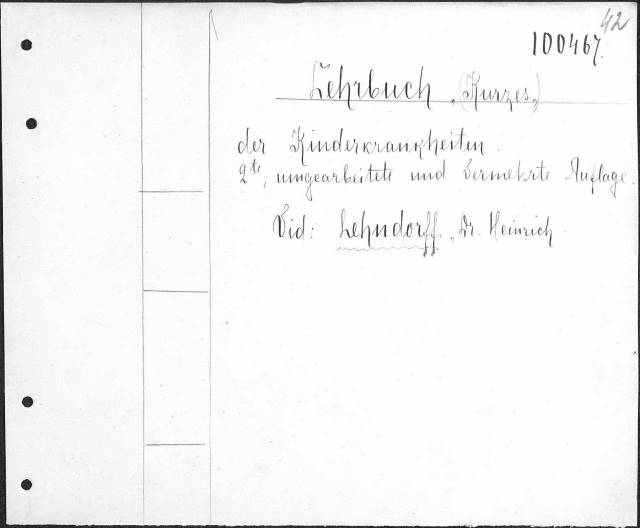 42
100467.
Lehrbuch (Kurzes)
der Kinderkrankheiten.
2te, umgearbeitete und vermehrte Auflage.
Vid: Lehndorff, Dr. Heinrich